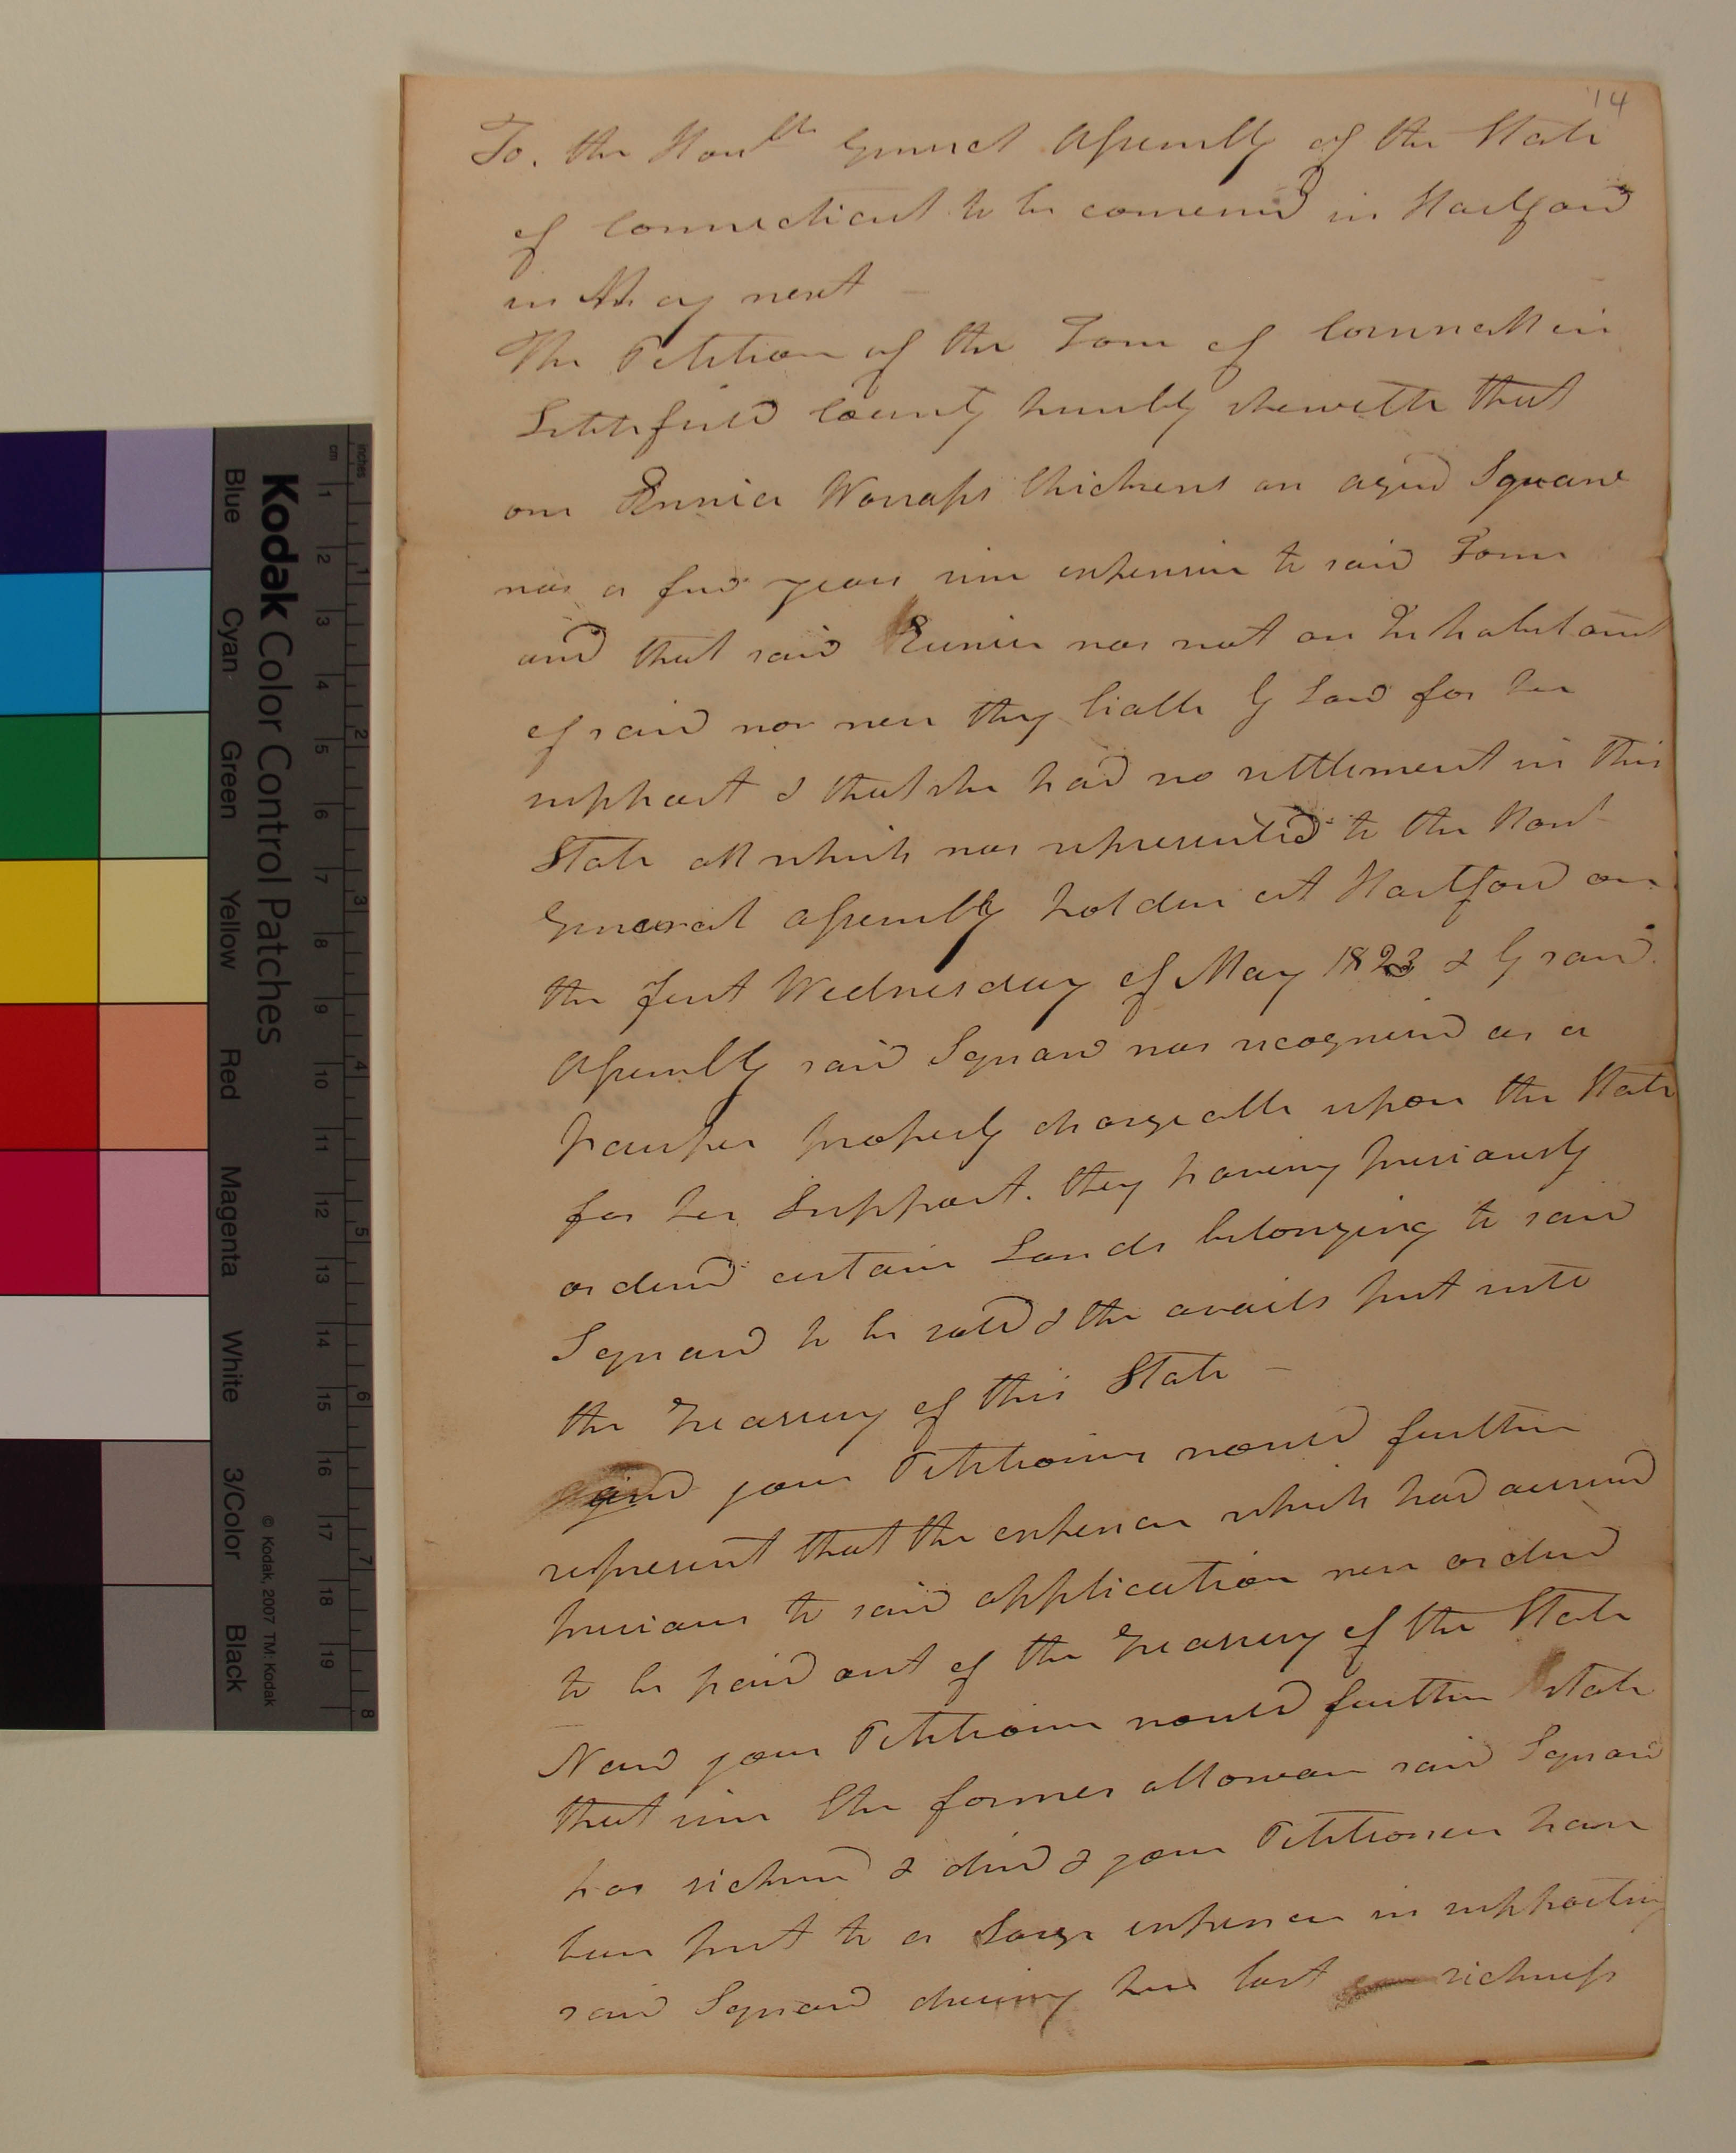 14
To. the Honble General Assembly of the State
of Connecticut to be convened in Hartford
in May next —
The Petition of the Town of Cornwall in
Litchfield County humbly sheweth that
one Eunice Warrups Chickens an aged Squaw
was a few years since expensive to said Town
and that said Eunice was not an Inhabitant
of said nor were they liable by Law for her
support & that she had no settlement in this
State all which was represented to the Honl
General assembly holden at Hartford on
the first Wednesday of May 1823 & by said
Assembly said Squaw was recognised as a
pauper properly chargeable upon the State
for her Support. they having previously
ordered certain Lands belonging to said
Squaw to be sold & the avails put into
the Treasury of this State —
and your Petitioners would further
represent that the expences which had accrued
previous to said application were ordered
to be paid out of the Treasury of the State
Now your Petitioners would further state
that since the former allowance said Squaw
has sickened & died & your Petitioners have
been put to a Large expence in supporting
said Squaw during her last sickness
Kodak Color Control Patches
Blue Cyan Green Yellow Red Magenta White 3/Color Black
© Kodak, 2007 TM: Kodak
inches 1 2 3 4 5 6 7 8
cm 1 2 3 4 5 6 7 8 9 10 11 12 13 14 15 16 17 18 19